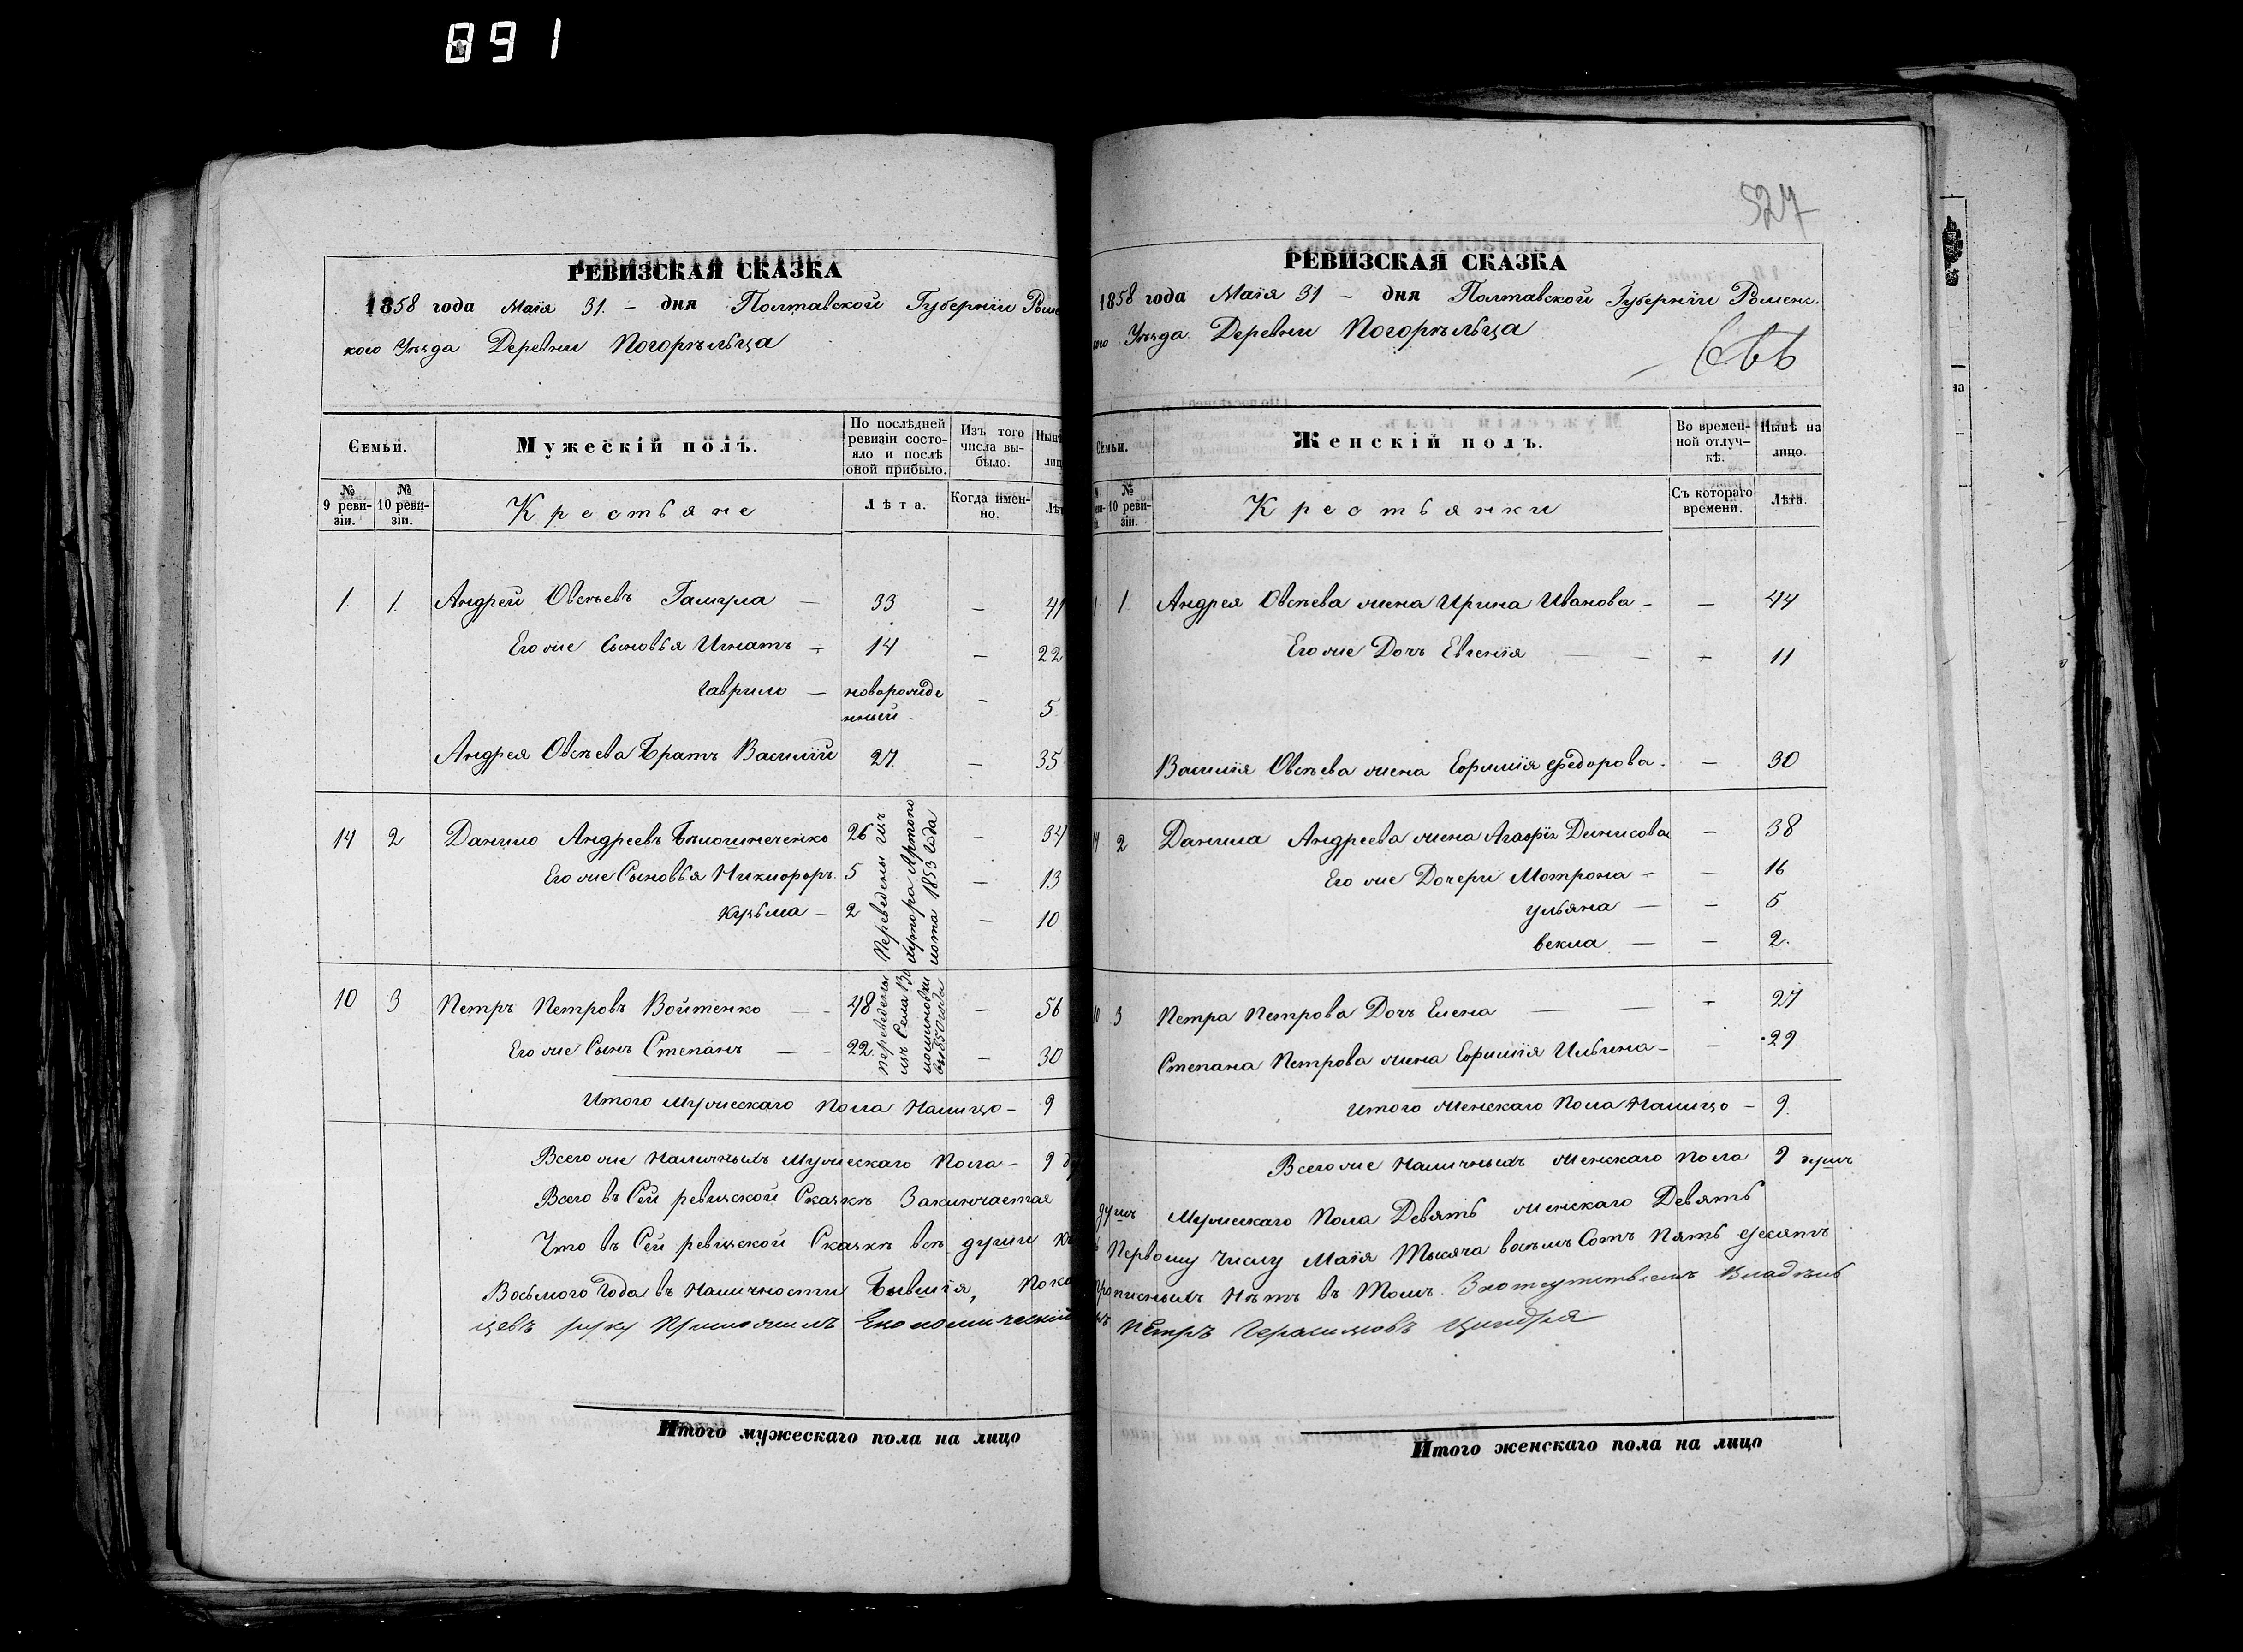 891
РЕВИЗСКАЯ СКАЗКА
1858 года Маія 31. – дня Полтавской Губерніи Роме
кого Уѣзда Деревни Погорѣльца
Семьи.
Мужескій полъ.
По послѣдней ревизіи состояло и послѣ оной прибыло.
Изъ того числа выбыло.
Нын
лиц
№ 9 ревизіи.
№ 10 ревизіи.
Крестьяне
Лѣта.
Когда именно.
Лѣт
1. 1. Андрей Овсѣевъ — 33 — 41
Его же Сыновья Игнатъ — 14 — 22
Гаврило — новорожденный. — 5
Андрея Овсѣева Братъ Василій 27. — 35
14 2 Данило Андреевъ 26 — 34
Его же Сыновья Никифоръ. 5 — 13
Кузьма — 2 — 10
Переведены изъ Хутора 1853 года
10 3 Петръ Петровъ Войтенко — 48 — 56
Его же Сынъ Степанъ — 22. — 30
переведены изъ Села в 1850 года
Итого Мужескаго Пола Налицо — 9
Всего же Наличныхъ Мужескаго Пола — 9 д
Всего въ Сей ревизской Сказкѣ Заключается
Что въ Сей ревизской Сказкѣ всѣ души къ
Восьмого Года въ Наличности Бывшія, Пока
цевъ руку Приложилъ Економическій
Итого мужескаго пола на лицо
527
РЕВИЗСКАЯ СКАЗКА
1858 года Маія 31 – дня Полтавской Губерніи Роменс.
кого Уѣзда Деревни Погорѣльца
Семьи.
Женскій полъ.
Во временной отлучкѣ.
Нынѣ на лицо.
№ 10 ревизіи.
Крестьянки
Съ котораго времени.
Лѣта.
1 1. Андрея Овсѣева жена Ирина Иванова — — 44
Его же Дочь Евгенія — — 11
Василія Овсѣева жена Евфимія Федорова. — 30
2 Данила Андреева жена Агафія Динисова — 38
Его же Дочери Мотрона — — 16
Ульяна — — 5
Векла — — 2.
3 Петра Петрова Дочь Елена — — 27
Степана Петрова жена Евфимія Ильина — — 29
Итого Женскаго Пола Налицо — 9.
Всего же Наличныхъ Женскаго Пола 9 душъ
душъ Мужескаго Пола Девять Женскаго Девять
Первому Числу Маія Тысяча восѣмъ Сотъ Пять десятъ
Прописныхъ Нѣтъ въ Томъ За отсутствіемъ Владѣль
Петръ Герасимовъ
Итого женскаго пола на лицо